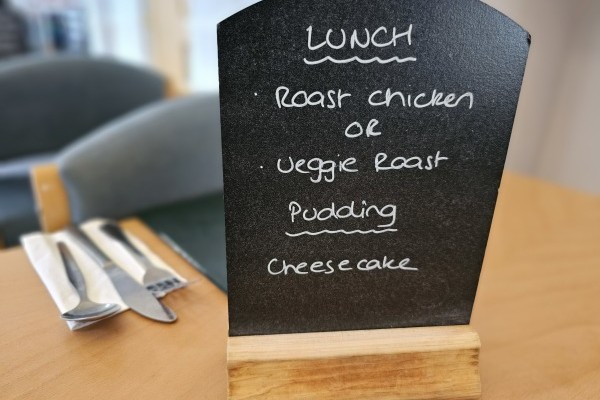 LUNCH
· Roast chicken
OR
· Veggie Roast
Pudding
Cheesecake